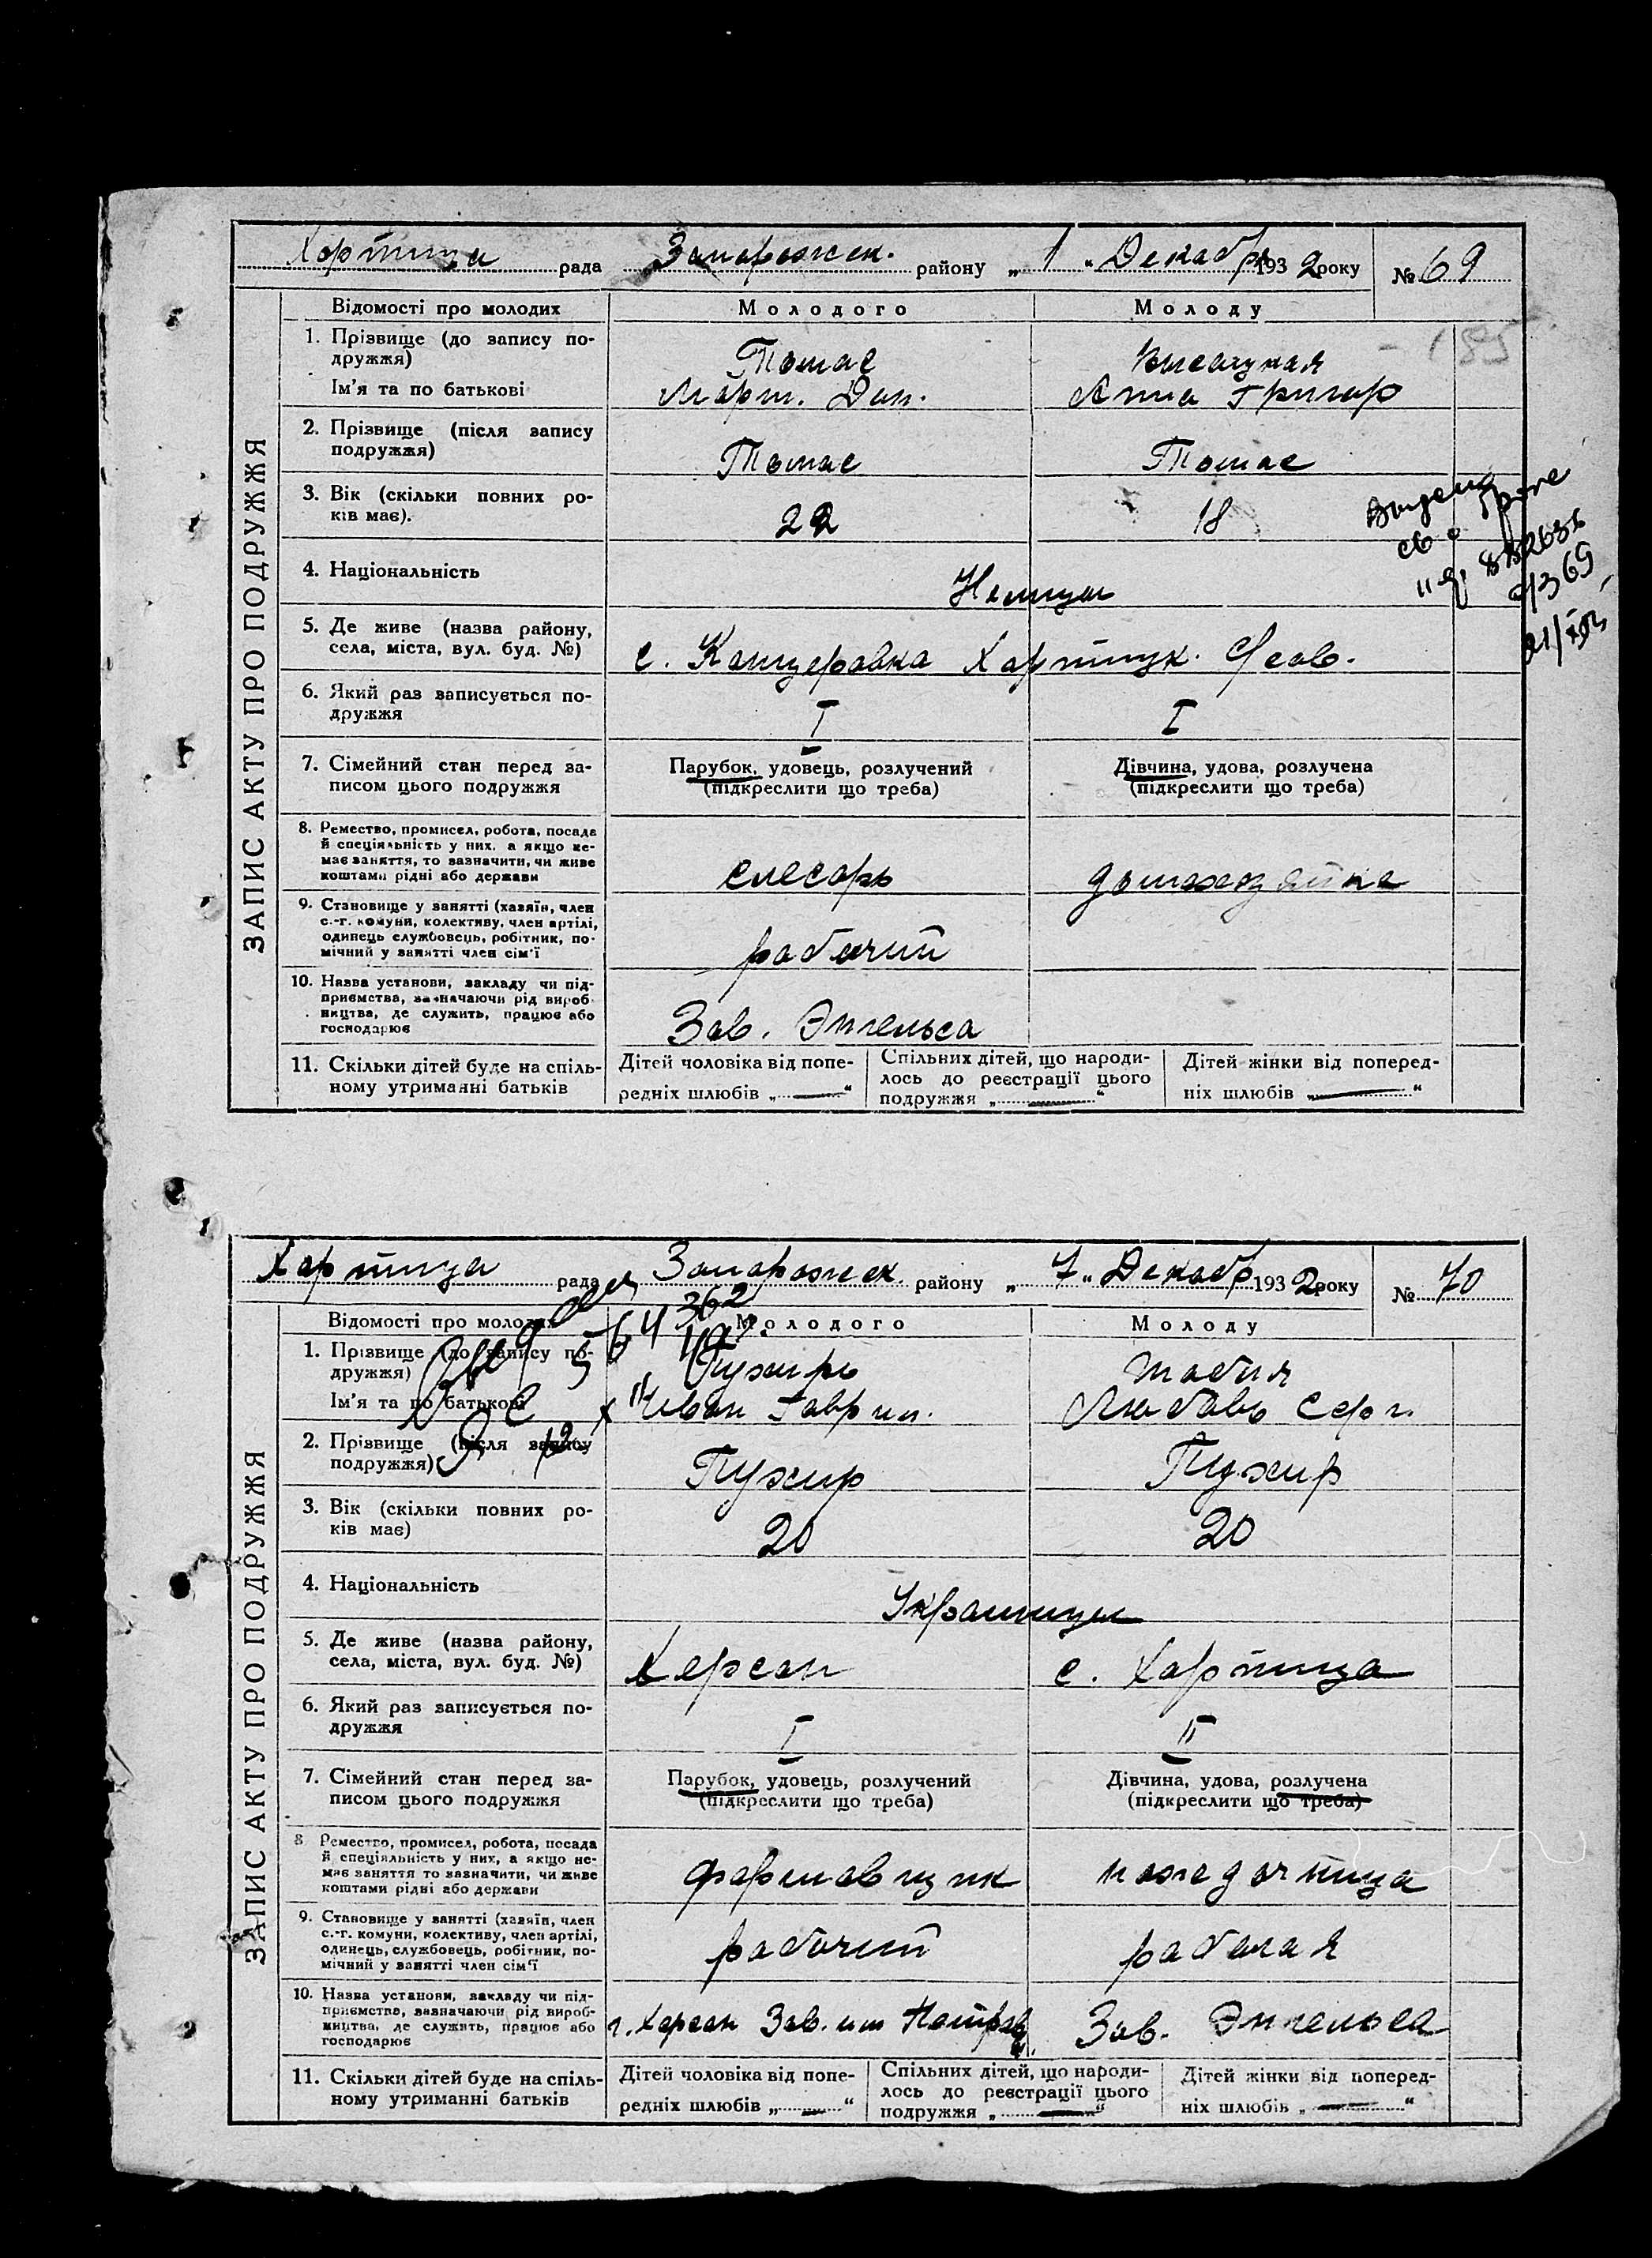 Хортица рада Запорожск. району „ 1 „ Декабр 1932 року № 69
ЗАПИС АКТУ ПРО ПОДРУЖЖЯ
Відомості про молодих Молодого Молоду
1. Прізвище (до запису по-
дружжя) Томас Высоцкая
Ім'я та по батькові Март. Дан. Анна Григор
2. Прізвище (після запису
подружжя) Томас Томас
3. Вік (скільки повних ро-
ків має). 22 18
4. Національність Немцы
5. Де живе (назва району,
села, міста, вул. буд. №) с. Канцеровка Хортицк.
6. Який раз записується по-
дружжя I I
7. Сімейний стан перед за-
писом цього подружжя Парубок, удовець, розлучений Дівчина, удова, розлучена
(підкреслити що треба) (підкреслити що треба)
8. Ремество, промисел, робота, посада
й спеціяльність у них. а якщо не-
має заняття, то зазначити, чи живе
коштами рідні або держави слесарь домхозяйка
9. Становище у занятті (хазяїн, член
с.-г. комуни, колективу, член артілі,
одинець службовець, робітник, по-
мічний у занятті член сім'ї рабочий
10. Назва установи, закладу чи під-
приємства, зазначаючи рід вироб-
ництва, де служить, працює або
господарює Зав. Энгельса
11. Скільки дітей буде на спіль-
ному утриманні батьків
Дітей чоловіка від попе-
редніх шлюбів „ — “
Спільних дітей, що народи-
лось до реєстрації цього
подружжя „ — “
Дітей жінки від поперед-
ніх шлюбів „ — “
Хортица рада Запорожск. району „ 7 „ Декабр 1932 року № 70
ЗАПИС АКТУ ПРО ПОДРУЖЖЯ
Відомості про молодих Молодого Молоду
1. Прізвище (до запису по-
дружжя) Пухирь
Ім'я та по батькові Иван Гаврил. Любовь Серг.
2. Прізвище (після запису
подружжя) Пухир Пухир
3. Вік (скільки повних ро-
ків має) 20 20
4. Національність Украинцы
5. Де живе (назва району,
села, міста, вул. буд. №) Херсон с. Хортица
6. Який раз записується по-
дружжя I II
7. Сімейний стан перед за-
писом цього подружжя Парубок, удовець, розлучений Дівчина, удова, розлучена
(підкреслити що треба) (підкреслити що треба)
8 Ремество, промисел, робота, посада
й спеціяльність у них, а якщо не-
має заняття то зазначити, чи живе
коштами рідні або держави формовщик
9. Становище у занятті (хазяїн, член
с.-г. комуни, колективу, член артілі,
одинець, службовець, робітник, по-
мічний у занятті член сім'ї рабочий рабочая
10. Назва установи, закладу чи під-
приємства, зазначаючи рід вироб-
ництва, де служить, працює або
господарює г. Херсон Зав. им Петровск Зав. Энгельса
11. Скільки дітей буде на спіль-
ному утриманні батьків
Дітей чоловіка від попе-
редніх шлюбів „ — “
Спільних дітей, що народи-
лось до реєстрації цього
подружжя „ — “
Дітей жінки від поперед-
ніх шлюбів „ — “